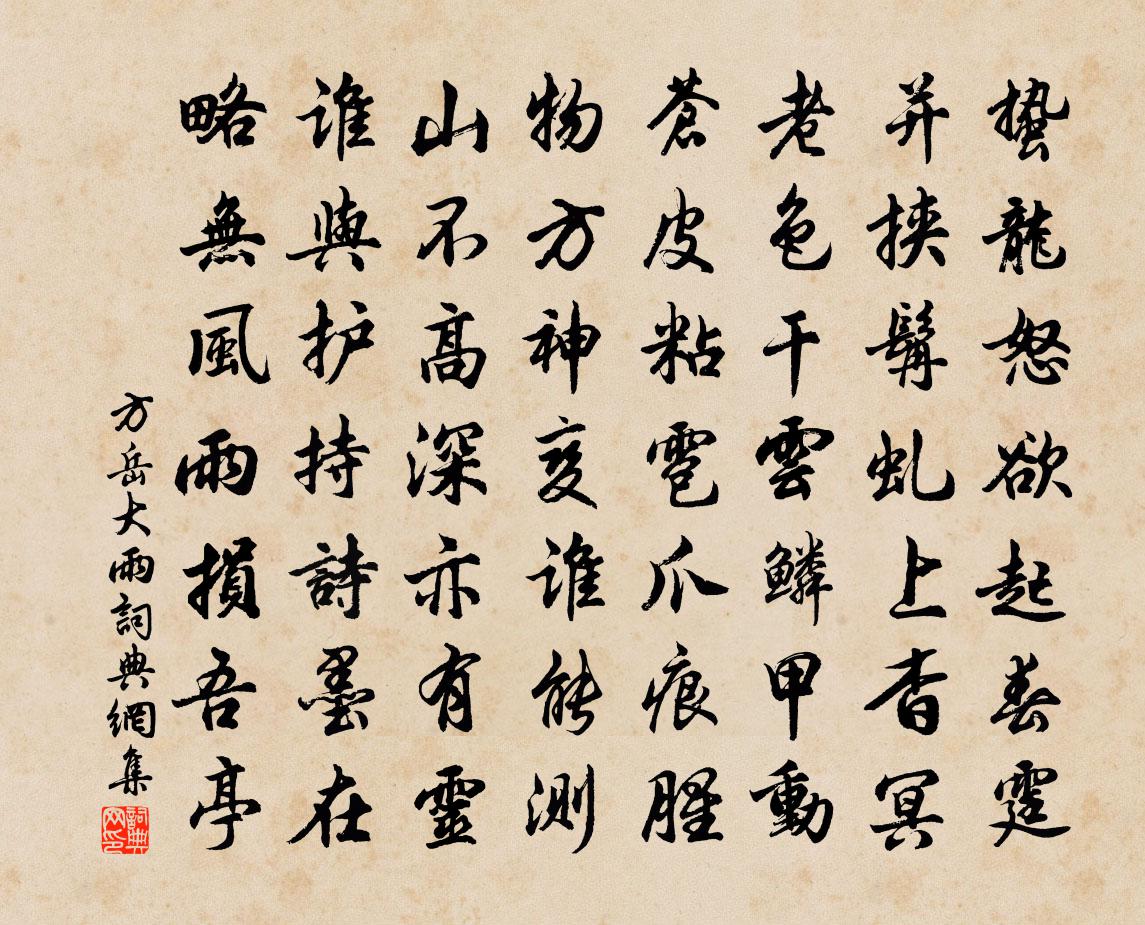 蟄龍怒欲起春霆
并挾髯虬上杳冥
老色干雲鱗甲動
蒼皮粘雹爪痕腥
物方神变誰能測
山不高深亦有靈
誰與护持詩墨在
略無風雨損吾亭
方岳大雨詞典網集
詞典网印